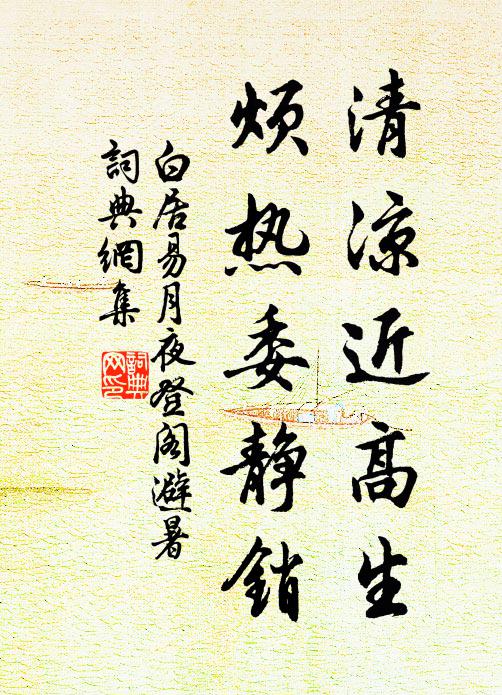 清凉近高生
烦热委静销
白居易月夜登阁避暑
詞典網集
詞典
网印